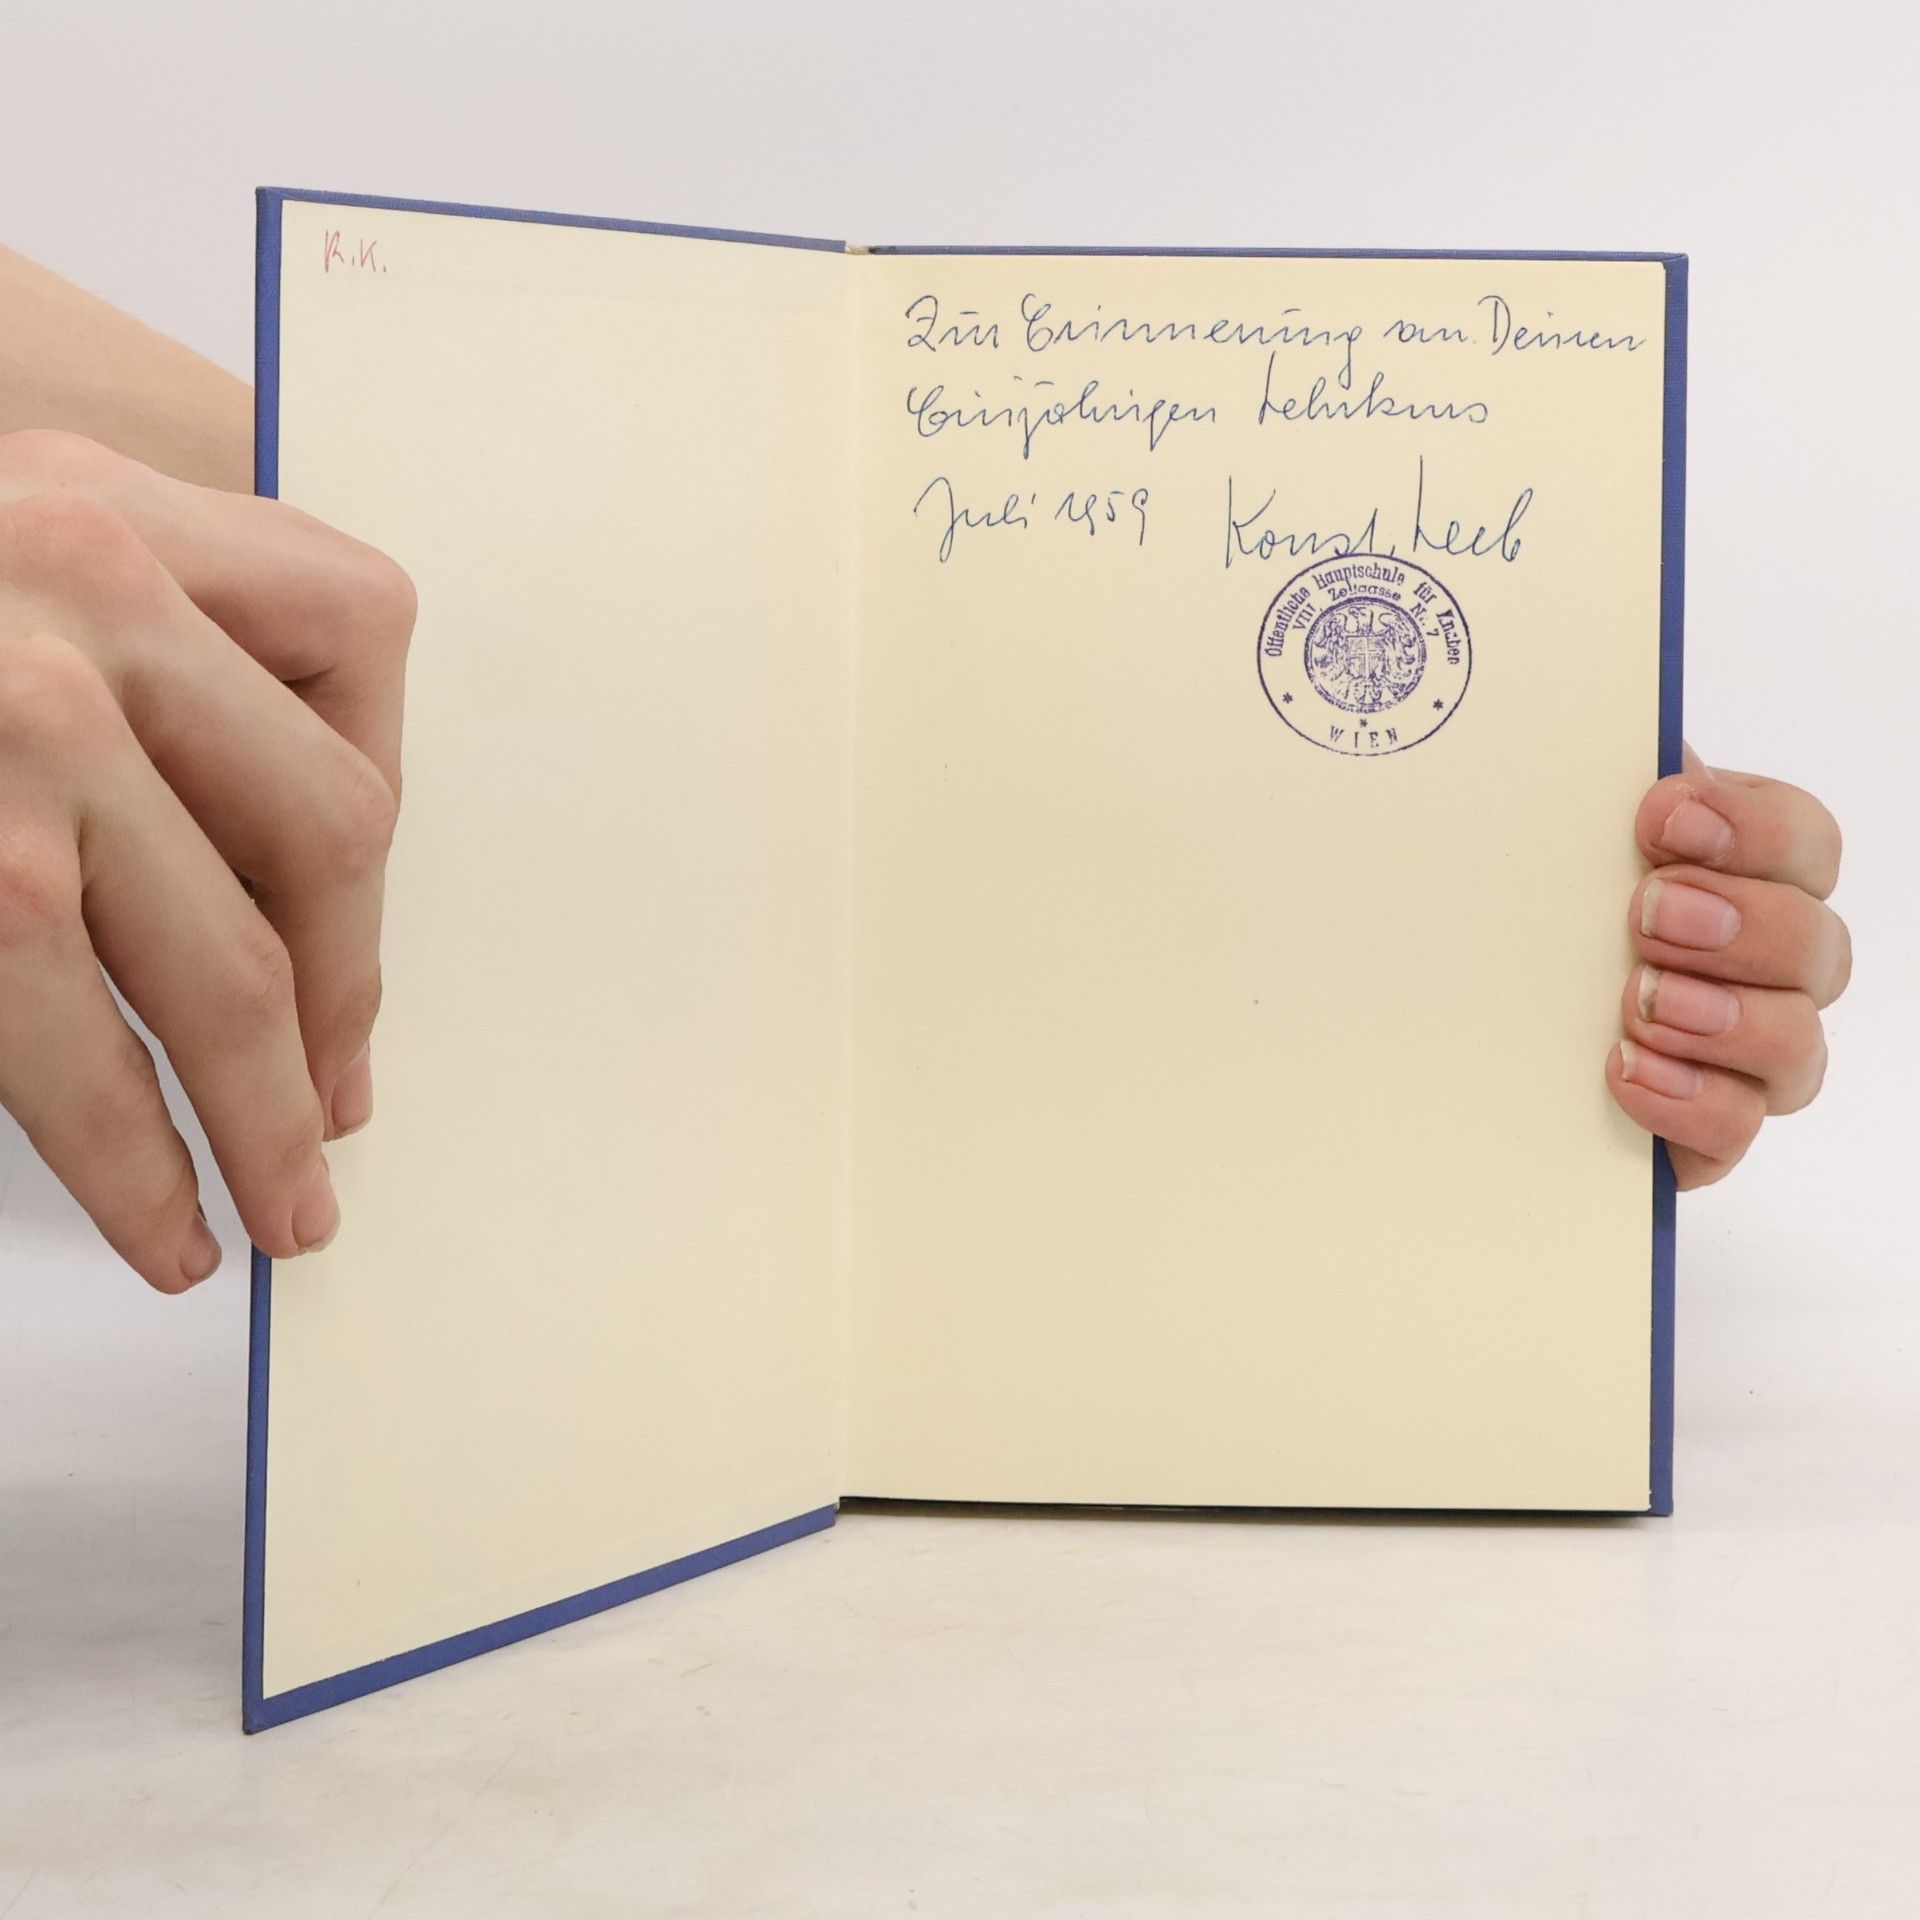 R.K.
Zur Erinnerung an Deinen
Einjährigen Lehrkurs
Juli 1959 Konst. Leeb
Öffentliche Hauptschule für Knaben
VIII. Zeltgasse Nr. 7
WIEN